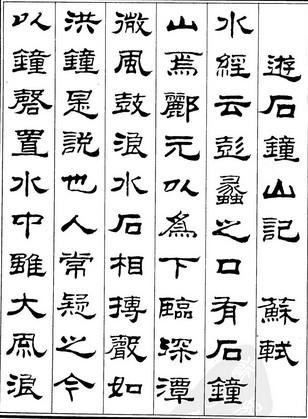 遊石鐘山記　蘇軾
水經云彭蠡之口有石鐘
山焉酈元以為下臨深潭
微風鼓浪水石相搏聲如
洪鐘是說也人常疑之今
以鐘磬置水中雖大風浪